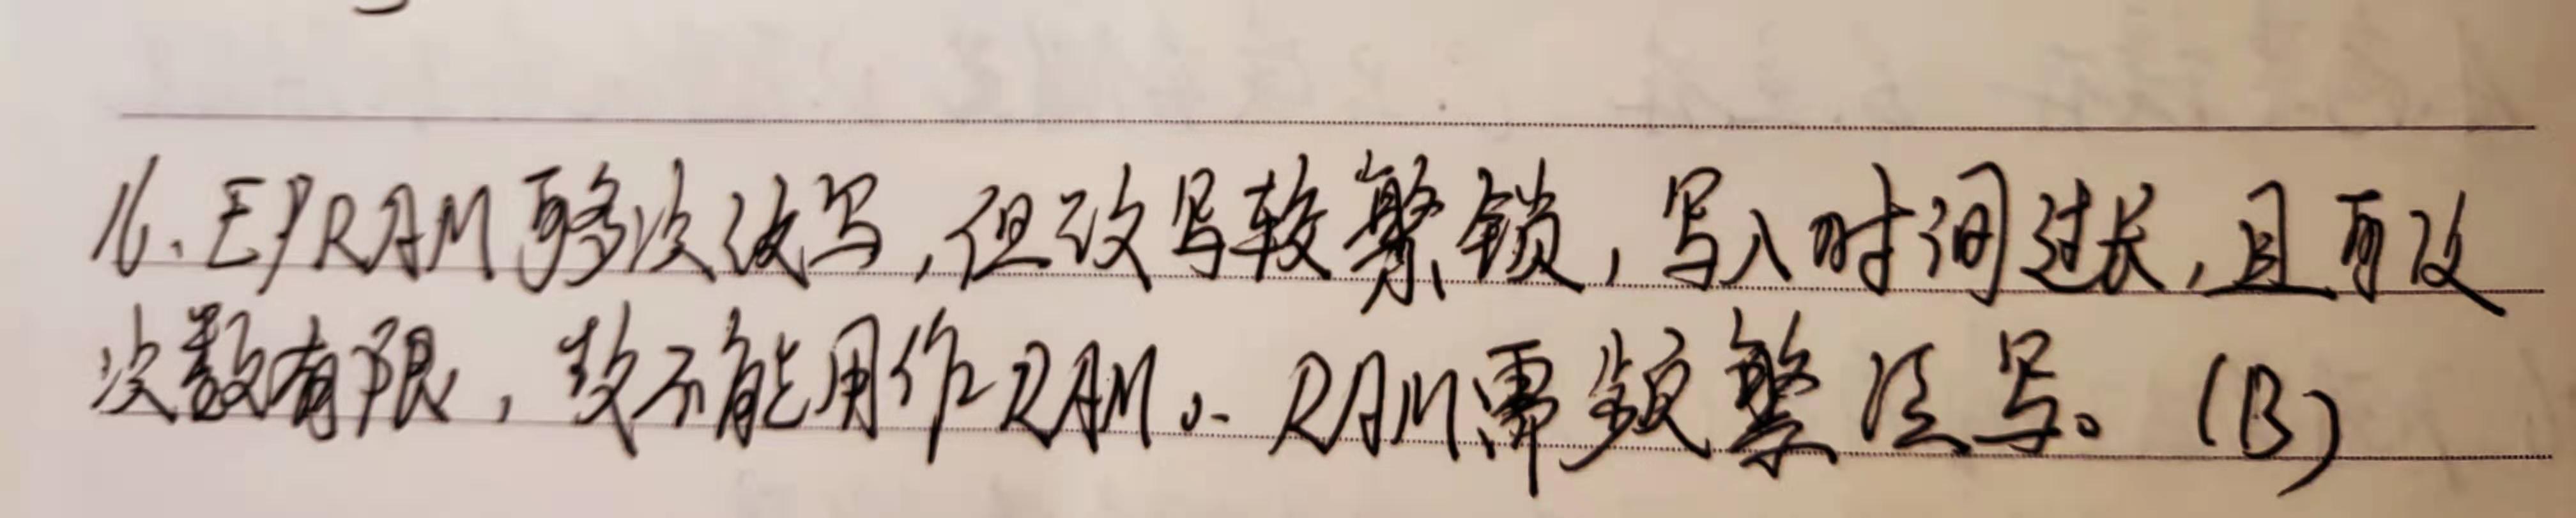 16. EPRAM可多次改写,但改写较繁锁,写入时间过长,且可改
次数有限,故不能用作RAM。 RAM需频繁读写。(B)